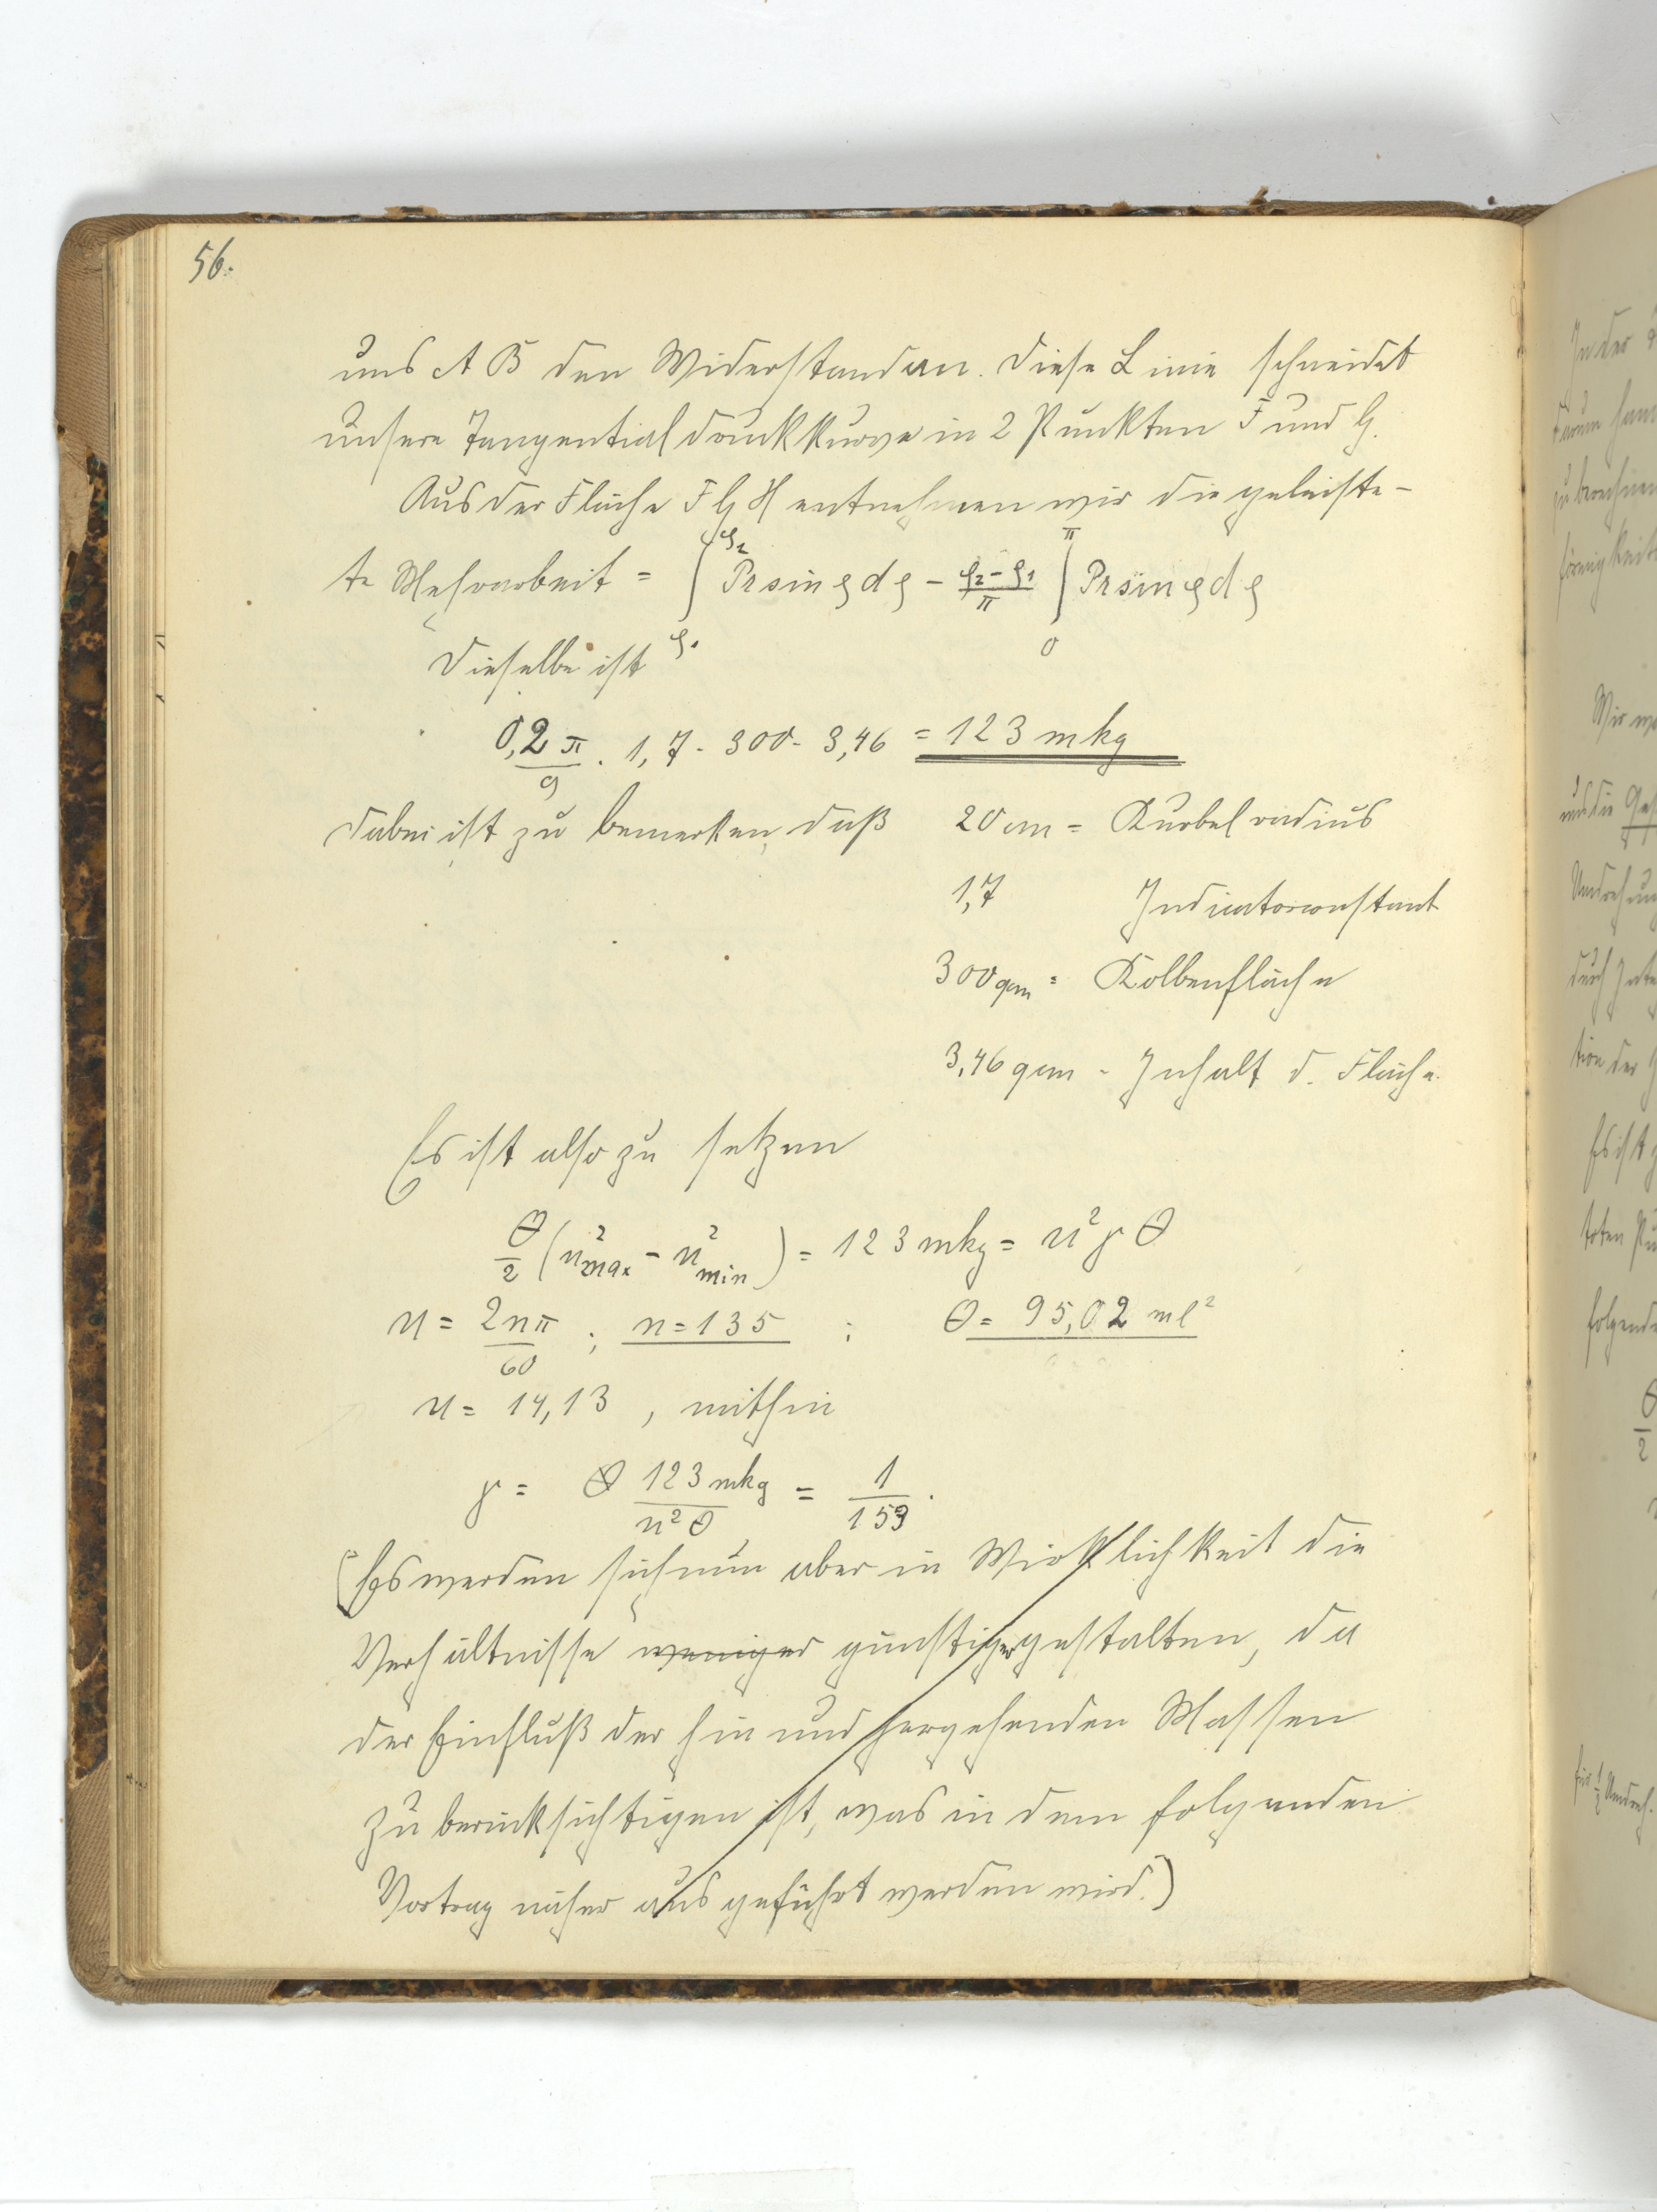 56.
uns A B den Widerstand an. Diese Linie schneidet
unsere Tangentialdruckkurve in 2 Punkten F und G.
Aus der Fläche F G H entnehmen wir die geleiste-
te Mehrarbeit = ∫_{φ1}^{φ2} Pr sin φ dφ - (φ2-φ1)/π ∫_0^π Pr sin φ dφ
Dieselbe ist
0,2 π/9 · 1,7 · 300 · 3,46 = 123 mkg
Dabei ist zu bemerken, daß 20 cm = Kurbelradius
1,7 Indicatorconstant
300 qcm = Kolbenfläche
3,46 qcm - Inhalt d. Fläche.
Es ist also zu setzen
Θ/2 (u²max - u²min) = 123 mkg = u² γ Θ
u = 2nπ/60 ; n = 135 ; Θ = 95,02 ml²
u = 14,13 , mithin
γ = Θ 123 mkg/u²Θ = 1/153.
(Es werden sich nun aber in Wirklichkeit die
Verhältnisse weniger günstiger gestalten, da
der Einfluß der hin und hergehenden Massen
zu berücksichtigen ist, was in dem folgenden
Vortrag näher ausgeführt werden wird.)